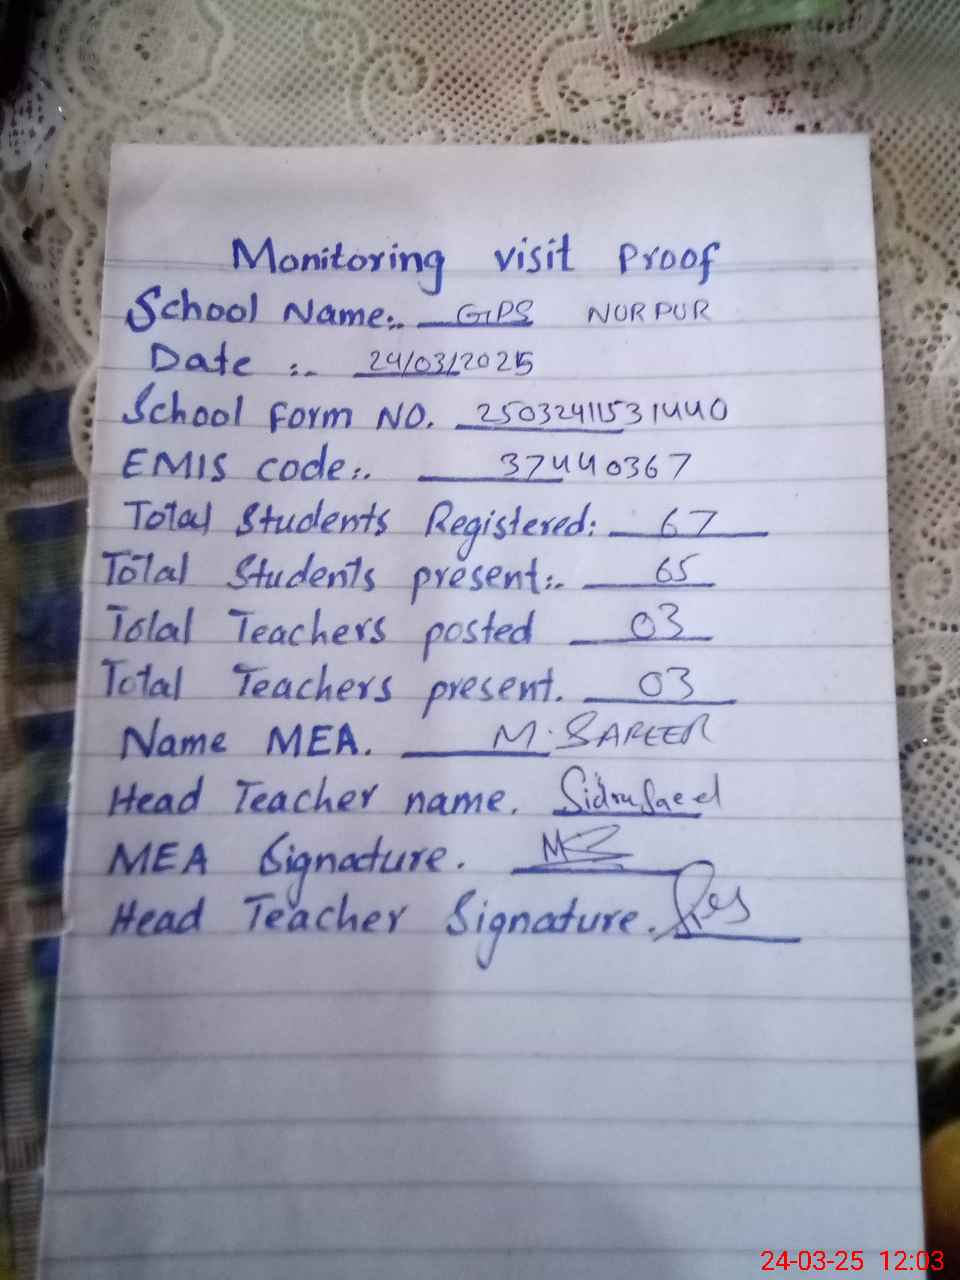 Monitoring visit proof
School Name:. GPS NURPUR
Date :- 24/03/2025
School form NO. 25032411531440
EMIS code:. 37440367
Total Students Registered: 67
Total Students present:. 65
Total Teachers posted 03
Total Teachers present. 03
Name MEA. M.
Head Teacher name. Sidra Saeed
MEA Signature.
Head Teacher Signature.
24-03-25 12:03